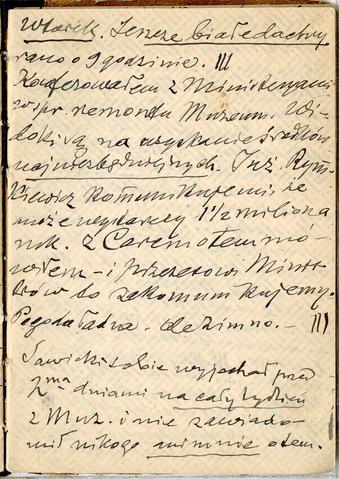 Wtorek. Jeszcze białe dachy
rano o 9 godzinie. III
Konferowałem z Ministerjami
w spr. remontu Muzeum. Wi-
doki są na uzyskanie środków
najniezbędniejszych. Inż. Rym-
kiewicz komunikuje mi, że
może wystarczy 1 1/2 miliona
mk. Z Carem o tem mó-
wiłem - i Prezesowi Minist-
rów to zakomunikujemy.
Pogoda ładna. ale zimno. - III
Sawicki sobie wyjechał przed
2ma dniami na cały tydzień
z Muz. i nie zawiado-
mił nikogo ani mnie o tem.